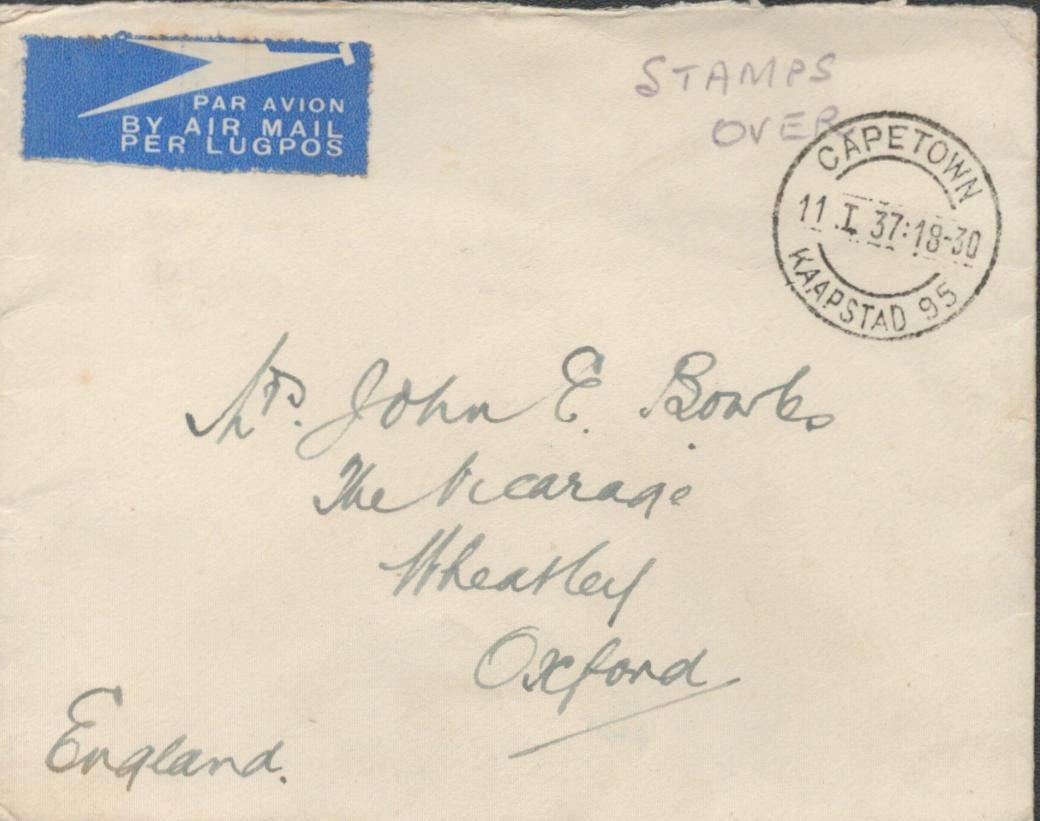 PAR AVION
BY AIR MAIL
PER LUGPOS
STAMPS
OVER
CAPETOWN
11 I 37:18-30
KAAPSTAD 95
Mrs. John E. Bowles
The Vicarage
Wheatley
Oxford
England.